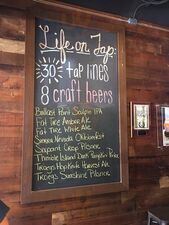 Life on Tap:
30 tap lines
8 craft beers
Ballast Point Sculpin IPA
Fat Tire Amber Ale
Fat Tire White Ale
Sierra Nevada Oktoberfest
Sixpoint Crisp Pilsner
Thimble Island Dark Pumpkin
Troegs Hop Knife Harvest Ale
Troegs Sunshine Pilsner